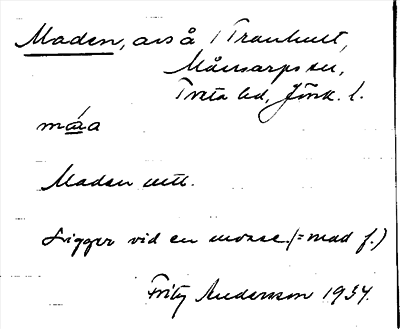 Maden, avs å Tranhult,
Månsarps sn,
Tveta hd, Jönk. l.
måa
Maden utt.
Ligger vid en mosse. (= mad f.)
Fritz Anderson 1934.